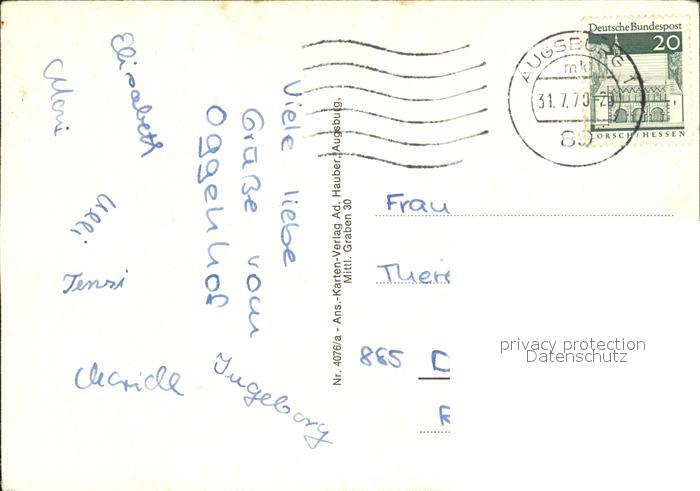 Viele liebe
Grüße vom
Oggenhof
Ingeborg
Elisabeth
Uli
Tensi
Maridl
Nr. 4076/a - Ans.-Karten-Verlag Ad. Hauber, Augsburg,
Mittl. Graben 30
Deutsche Bundespost
20
LORSCH/HESSEN
AUGSBURG 1
mk
31.7.70-20
89
Frau
There
885 D
privacy protection
Datenschutz